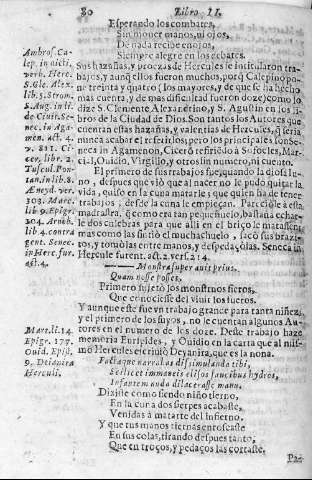 80 Libro II.
Esperando los combates,
Sin mouer manos, ni ojos,
De nada recibe enojos,
Siempre alegre en los debates.
Sus hazañas, y proezas de Hercules se intitularon tra-
bajos, y aunq̃ ellos fueron muchos, porq̃ Calepino po-
ne treinta y quatro (los mayores, y de que se ha hecho
mas cuenta, y de mas dificultad fueron doze) como lo
dize S. Clemente Alexandrino, y S. Agustin en los li-
bros de la Ciudad de Dios. Son tantos los Autores que
cuentan estas hazañas, y valentias de Hercules, q̃ seria
nunca acabar el referirlos, pero los principales son Se-
neca in Agamenon, Ciceró refiriédo à Sofocles, Mar-
cial, Ouidio, Virgilio, y otros sin numero, ni cuento.
El primero de sus trabajos fue, quando la diosa Iu-
no, despues que viò que al nacer no le pudo quitar la
vida, quiso en la cuna matarle; que quien ha de tener
trabajos, desde la cuna le empieçan. Pareciòle à esta
madrastra, q̃ como era tan pequeñuelo, bastaua echar-
le dos culebras para que alli en el briço le matassen;
mas como las sintiò el muchachuelo, sacò sus braci-
tos, y tomòlas entre manos, y despedaçòlas. Seneca in
Hercule furent. act. 2. vers. 214.
Monstra super auit prius,
Quam nosse posset.
Primero sujetò los monstruos fieros,
Que conociesse del viuir los fueros.
Y aunque este fue vn trabajo grande para tanta niñez,
y el primero de los suyos, no le cuentan algunos Au-
tores en el numero de los doze. Deste trabajo haze
memoria Euripides, y Ouidio en la carta que al mis-
mo Hercules escriuiò Deyanira, que es la nona.
Factaque narrabas dissimulanda tibi,
Scilicet immaneis elisos faucibus hydros,
Infantem nuda dilacerasse manu.
Dixiste como siendo niño tierno,
En la cuna dos sierpes acabaste,
Venidas à matarte del infierno,
Y que tus manos tiernas enroscaste
En sus colas, tirando despues tanto,
Que en troços, y pedaços las cortaste.
Ambros. Ca-
lep. in dicti.
verb. Herc.
S. Gle. Alex.
lib. 5. Strom.
S. Aug. in li.
de Ciuit. Se-
nec. in Aga-
mem. act. 4.
v. 811. Ci-
cer. lib. 2.
Tuscul. Pon-
tan. in lib. 8.
Æneyd. ver.
303. Marc.
lib 9. Epigr.
304. Arnob.
lib 4. contra
gent. Senec.
in Herc. fur.
act. 4.
Marc. li. 14
Epigr. 177.
Ouid. Epist.
9. Deianira
Herculi.